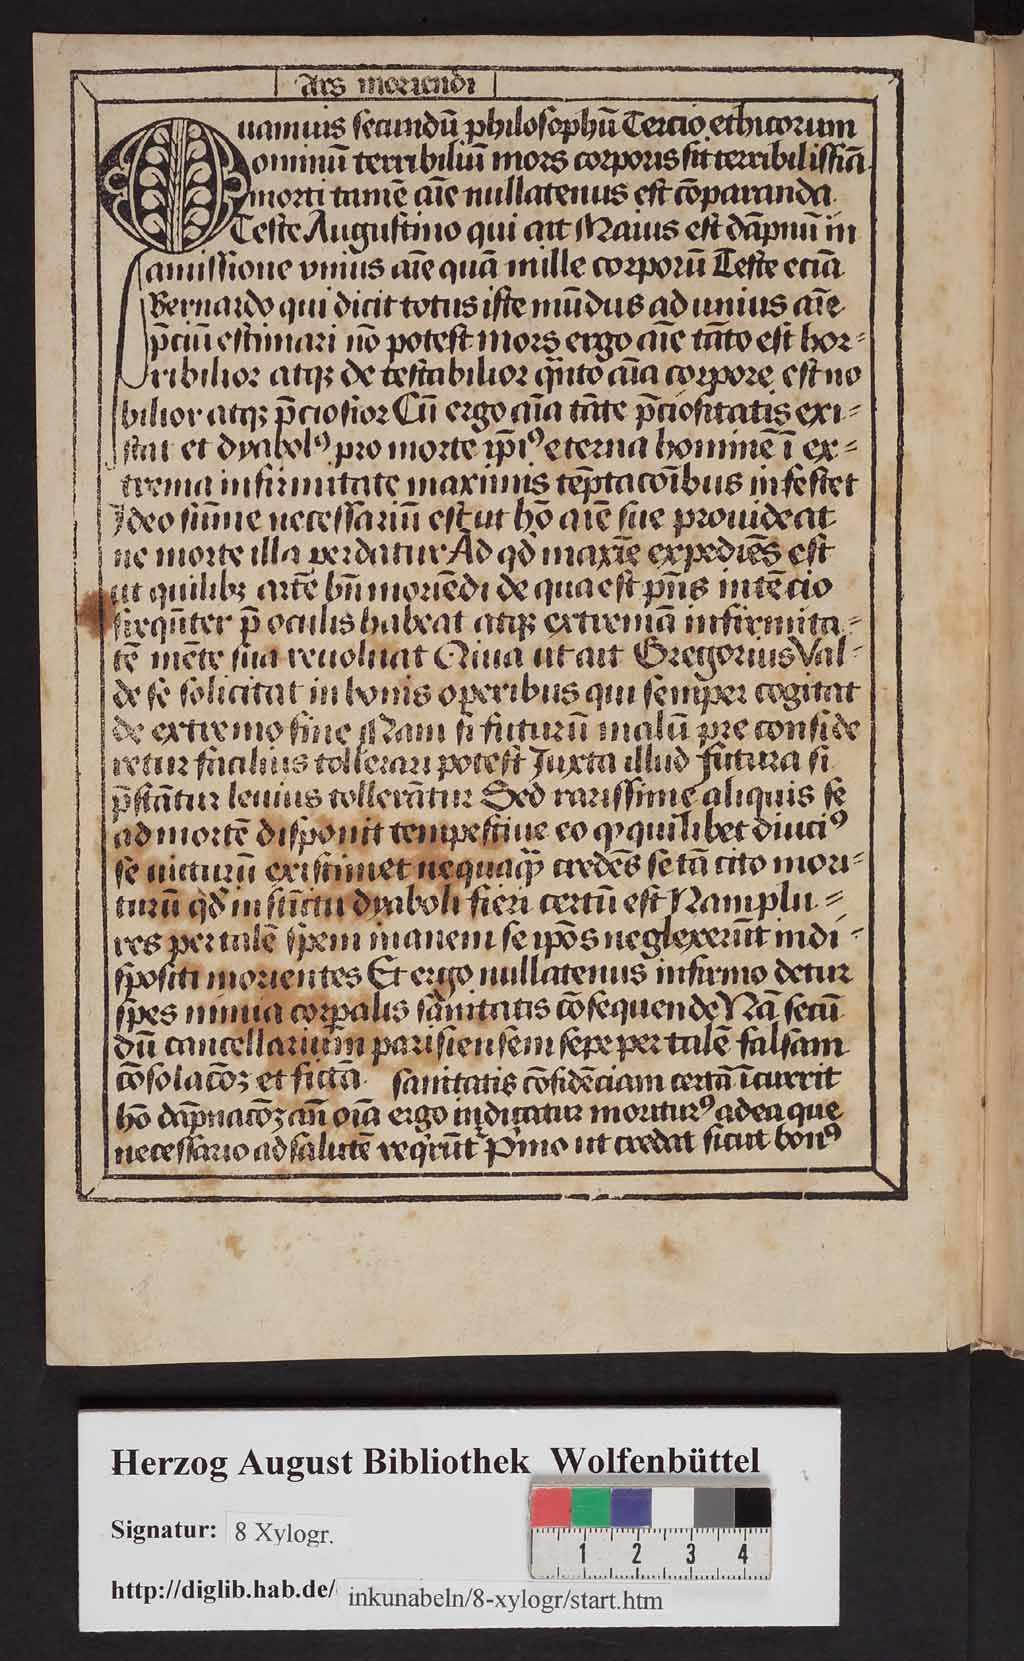 Ars moriendi
Quamuis secundū philosophū Tercio ethicorum
omniuū terribiliū mors corporis sit terribilissiā
morti tamē aīe nullatenus est cōparanda
Teste Augustino qui ait Maius est dāpnū in
amissione vnius aīe quā mille corporū Teste eciā
Bernardo qui dicit totus iste mūdus ad unius aīe
p̄ciū estimari nō potest Mors ergo aīe tāto est hor=
ribilior atqꝫ de testabilior qͣnto aīa corpore est no
bilior atqꝫ p̄ciosior Cū ergo aīa tāte p̄ciositatis exi=
stat et dyabolꝰ pro morte ip̄iꝰ eterna hominē ī ex=
trema infirmitate maximis tēptacōibus infestet
Ideo sūme necessariū est ut hō aīe sue prouideat
ne morte illa perdatur Ad qd̄ maxīe expediēs est
ut quilibꝫ artē bn̄ moriēdi de qua est p̄ns intēcio
freqūter p̄ oculis habeat atqꝫ extremā infirmita=
tē mēte sua reuoluat Quia ut ait Gregorius Val=
de se solicitat in bonis operibus qui semper cogitat
de extremo fine Nam si futurū malū pre conside
retur facilius tollerari potest Juxta illud futura si
p̄stātur leuius tollerātur Sed rarissime aliquis se
ad mortē disponit tempestiue eo ꝙ quilibet diuciꝰ
se uicturū existimet nequaqͣ credēs se tā cito mori=
turū qd̄ instīctu dyaboli fieri certū est Nam plu=
res per talē spem inanem se ip̄os neglexerūt indi=
spositi morientes Et ergo nullatenus infirmo detur
spes nimia corꝑalis sanitatis cōsequende Nā secū
dū cancellarium parisiensem sepe per talē falsam
cōsolacōꝫ et fictā sanitatis cōfidēciam certā īcurrit
hō dāpnacōꝫ an̄ oīa ergo inducatur moriturꝰ ad ea que
necessario ad salutē reqͥrūt͛ Pͥmo ut credat sicut bonꝰ
Herzog August Bibliothek Wolfenbüttel
Signatur: 8 Xylogr.
1 2 3 4
http://diglib.hab.de/ inkunabeln/8-xylogr/start.htm